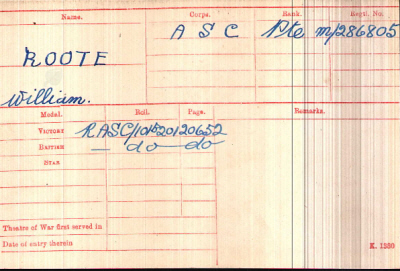 Name. Corps. Rank. Regtl. No.
A S C Pte M/286805
ROOTE
William.
Medal. Roll. Page. Remarks.
VICTORY RASC/101B20120652
BRITISH — do — do
STAR
Theatre of War first served in
Date of entry therein
K. 1380